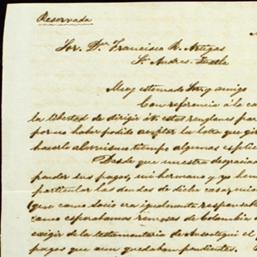 Reservada
Sor. Dn. Francisco R. Artigas
Sn. Andres Tuxtla
Muy estimado Sor. y amigo
Con referencia á la ca
la libertad de dirigir á U. estos renglones par
por no haber podido aceptar la letra que gir
hacerlo al mismo tiempo algunas esplic
Desde que nuestra desgracia
pender sus pagos, mi hermano y yo hem
particular las deudas de dicha casa, mien
que como socio era igualmente responsab
como esperabamos remesas de Colombia
exigir de la testamentaria de el
pagos que aun quedaban pendientes.